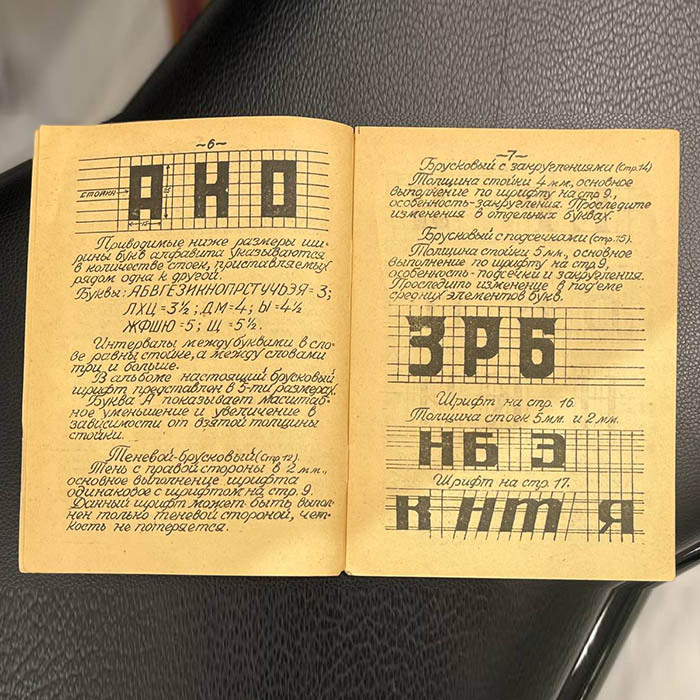 ~6~
СТОЙКА
А К О
Приводимые ниже размеры ши-
рины букв алфавита указываются
в количестве стоек, приставляемых
рядом одна к другой.
Буквы: АБВГЕЗИКНОПРСТУЧЬЭЯ = 3;
ЛХЦ = 3½; ДМ = 4; Ы = 4½
ЖФШЮ = 5; Щ = 5½.
Интервалы между буквами в сло-
ве равны стойке, а между словами
три и больше.
В альбоме настоящий брусковый
шрифт представлен в 5-ти размерах.
Буква А показывает масштаб-
ное уменьшение и увеличение в
зависимости от взятой толщины
стойки.
Теневой-Брусковый (Стр. 12).
Тень с правой стороны в 2 мм.,
основное выполнение шрифта
одинаковое с шрифтом на стр. 9.
Данный шрифт может быть выпол-
нен только теневой стороной, чет-
кость не потеряется.
~7~
Брусковый с закруглениями (Стр. 14)
Толщина стойки 4 мм, основное
выполнение по шрифту на стр 9,
особенность-закругления. Проследите
изменения в отдельных буквах.
Брусковый с подсечками (стр. 15).
Толщина стойки 5 мм, основное
выполнение по шрифту на стр 9,
особенность - подсечки и закругления.
Проследить изменение в под'еме
средних элементов букв.
ЗРБ
Шрифт на стр. 16.
Толщина стоек 5 мм. и 2 мм.
НБ Э
Шрифт на стр. 17.
К НТ Я